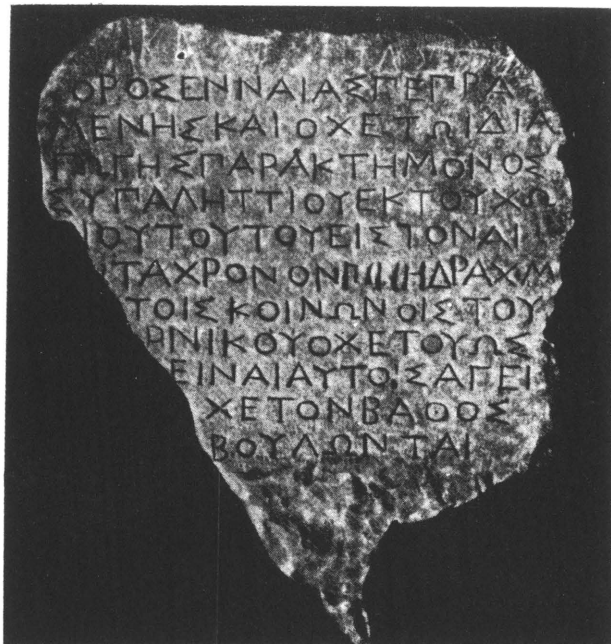 ΟΡΟΣΕΝΝΑΙΑΣΠΕΠΡΑ
ΜΕΝΗΣΚΑΙΟΧΕΤΩΙΔΙΑ
ΓΩΓΗΣΠΑΡΑΚΤΗΜΟΝΟΣ
ΣΥΠΑΛΗΤΤΙΟΥΕΚΤΟΥΧΩ
ΙΟΥΤΟΥΤΟΥΕΙΣΤΟΝΑΙ
ΤΑΧΡΟΝΟΝ ΔΡΑΧΜ
ΤΟΙΣΚΟΙΝΩΝΟΙΣΤΟΥ
ΡΝΙΚΟΥΟΧΕΤΟΥΩΣ
ΕΙΝΑΙΑΥΤΟΙΣΑΓΕΙ
ΧΕΤΟΝΒΑΘΟΣ
ΒΟΥΛΩΝΤΑΙ